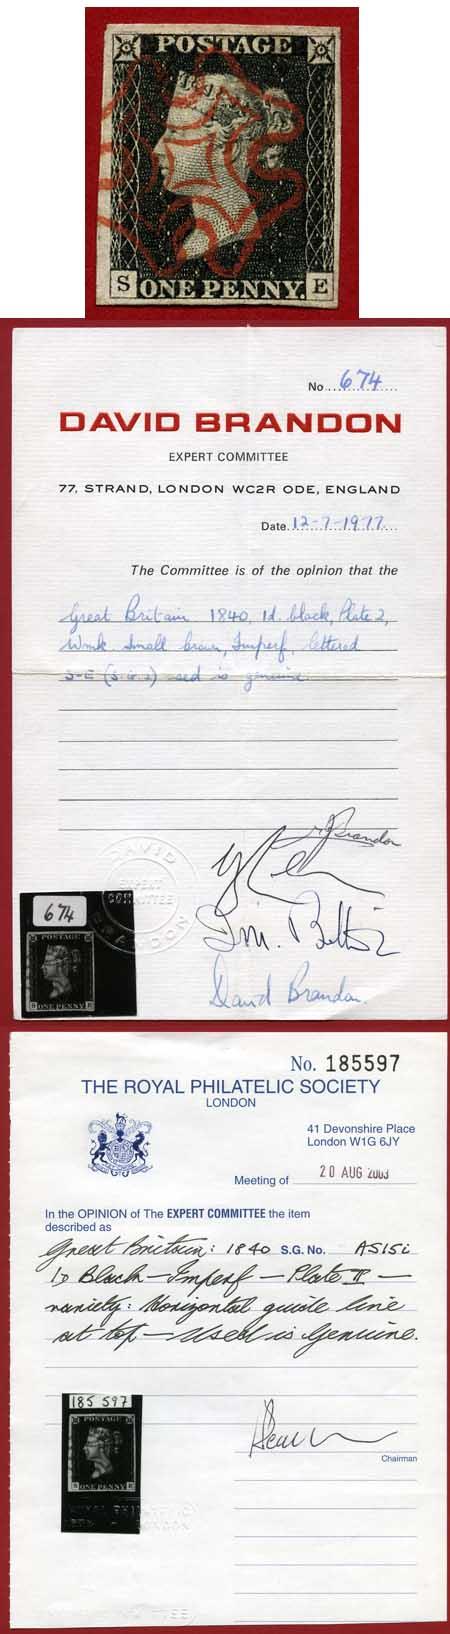 POSTAGE
S ONE PENNY. E
No. 674
DAVID BRANDON
EXPERT COMMITTEE
77, STRAND, LONDON WC2R ODE, ENGLAND
Date 12-7-1977
The Committee is of the opinion that the
Great Britain 1840, 1d. black, Plate 2,
Wmk Small Crown, Imperf, lettered
S-E (S.G.2) used is genuine.
DAVID
EXPERT
COMMITTEE
BRANDON
Brandon
David Brandon.
674
POSTAGE
S ONE PENNY E
No. 185597
THE ROYAL PHILATELIC SOCIETY
LONDON
41 Devonshire Place
London W1G 6JY
Meeting of 20 AUG 2003
In the OPINION of The EXPERT COMMITTEE the item
described as
Great Britain: 1840 S.G. No. AS15i
1D Black - Imperf - Plate II -
variety: Horizontal guide line
at top - Used is Genuine.
185 597
POSTAGE
S ONE PENNY E
Chairman